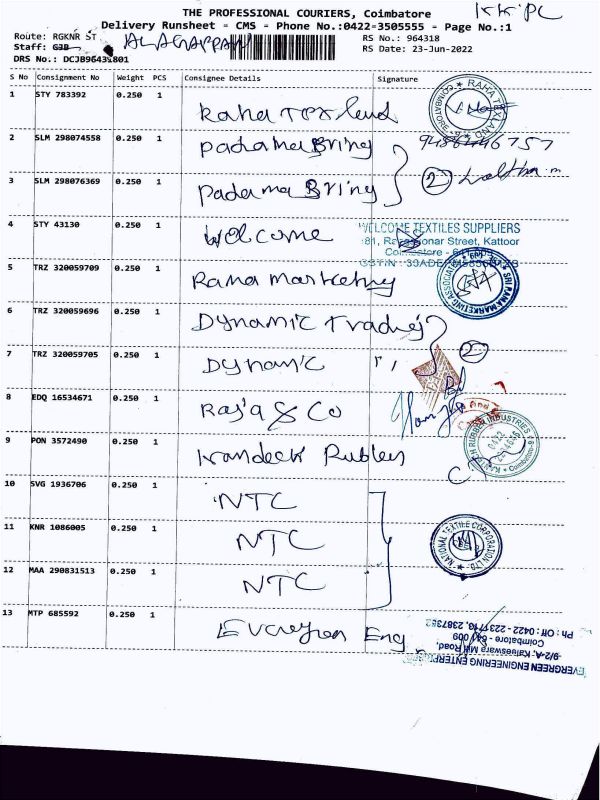 THE PROFESSIONAL COURIERS, Coimbatore
KK PC
Delivery Runsheet - CMS - Phone No.:0422-3505555 - Page No.:1
Route: RGKNR ST
RS No.: 964318
Staff: GJB ALAGAPPAN
RS Date: 23-Jun-2022
DRS No.: DCJB96431801
S No Consignment No Weight PCS Consignee Details Signature
1 STY 783392 0.250 1 Raha Tex lend
RAHA TEXLAND COIMBATORE
2 SLM 298074558 0.250 1 Padama Bring 9486446757
3 SLM 298076369 0.250 1 Padama Bring 2
4 STY 43130 0.250 1 Welcome
WELCOME TEXTILES SUPPLIERS
Street, Kattoor
5 TRZ 320059709 0.250 1 Rama Marketing
SRI RAMA MARKETING ASSOCIATES
6 TRZ 320059696 0.250 1 Dynamic Trading
7 TRZ 320059705 0.250 1 Dynamic 2
8 EDQ 16534671 0.250 1 Raja & Co
9 PON 3572490 0.250 1 Rubbers
RUBBER INDUSTRIES
10 SVG 1936706 0.250 1 NTC
11 KNR 1086005 0.250 1 NTC
NATIONAL TEXTILE CORPORATION LTD.
12 MAA 290831513 0.250 1 NTC
13 MTP 685592 0.250 1 Evergreen Eng
EVERGREEN ENGINEERING ENTERPR
9/2-A, Kaleeswara Mill Road,
Coimbatore - 641 009
Ph : Off : 0422 -